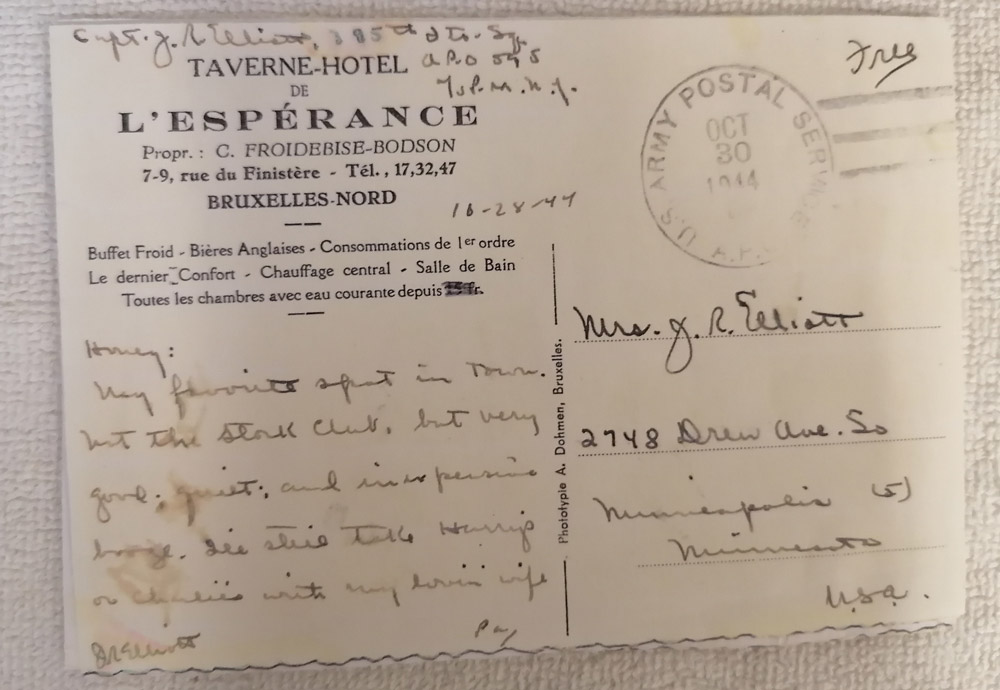 Capt. J. R. Elliott, 385th
APO
TAVERNE-HOTEL
DE
L'ESPÉRANCE
Propr. : C. FROIDEBISE-BODSON
7-9, rue du Finistère - Tél., 17,32,47
BRUXELLES-NORD
10-28-44
Buffet Froid - Bières Anglaises - Consommations de 1er ordre
Le dernier Confort - Chauffage central - Salle de Bain
Toutes les chambres avec eau courante depuis fr.
Honey:
My favorite spot in Town.
Not the Stork Club, but very
good; quiet; and inexpensive
booze. I'll still take Harry's
or Charlie's with my lovin wife
JRElliott
Phototypie A. Dohmen, Bruxelles.
Free
U.S. ARMY POSTAL SERVICE
OCT
30
1944
A.P.
Mrs. J. R. Elliott
2748 Drew Ave. So
Minneapolis (5)
Minnesota
U.S.A.